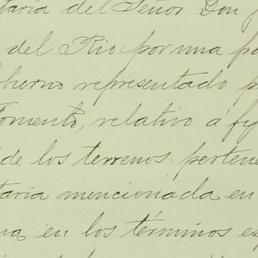 taria del Señor Don
del Rio por una pa
bierno representado p
Fomento, relativo a fij
de los terrenos perten
taria mencionada en
en los términos es